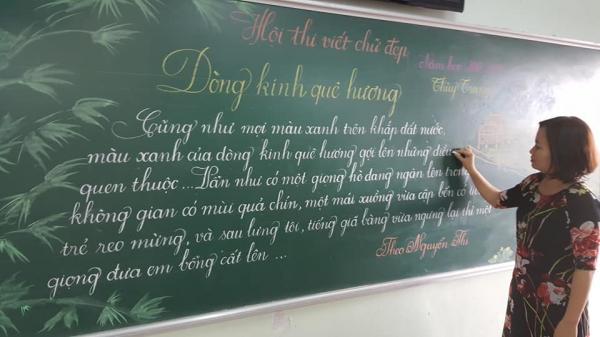 Hội thi viết chữ đẹp
Năm học
Dòng kinh quê hương
Thủy
Cũng như mọi màu xanh trên khắp đất nước,
màu xanh của dòng kinh quê hương gợi lên những điều
quen thuộc...Vẫn như có một giọng hò đang ngân lên trong
không gian có mùi quả chín, một mái xuồng vừa cập bến có
trẻ reo mừng, và sau lưng tôi, tiếng giã bàng vừa ngưng lại thì một
giọng đưa em bổng cất lên ...
Theo Nguyễn Thi